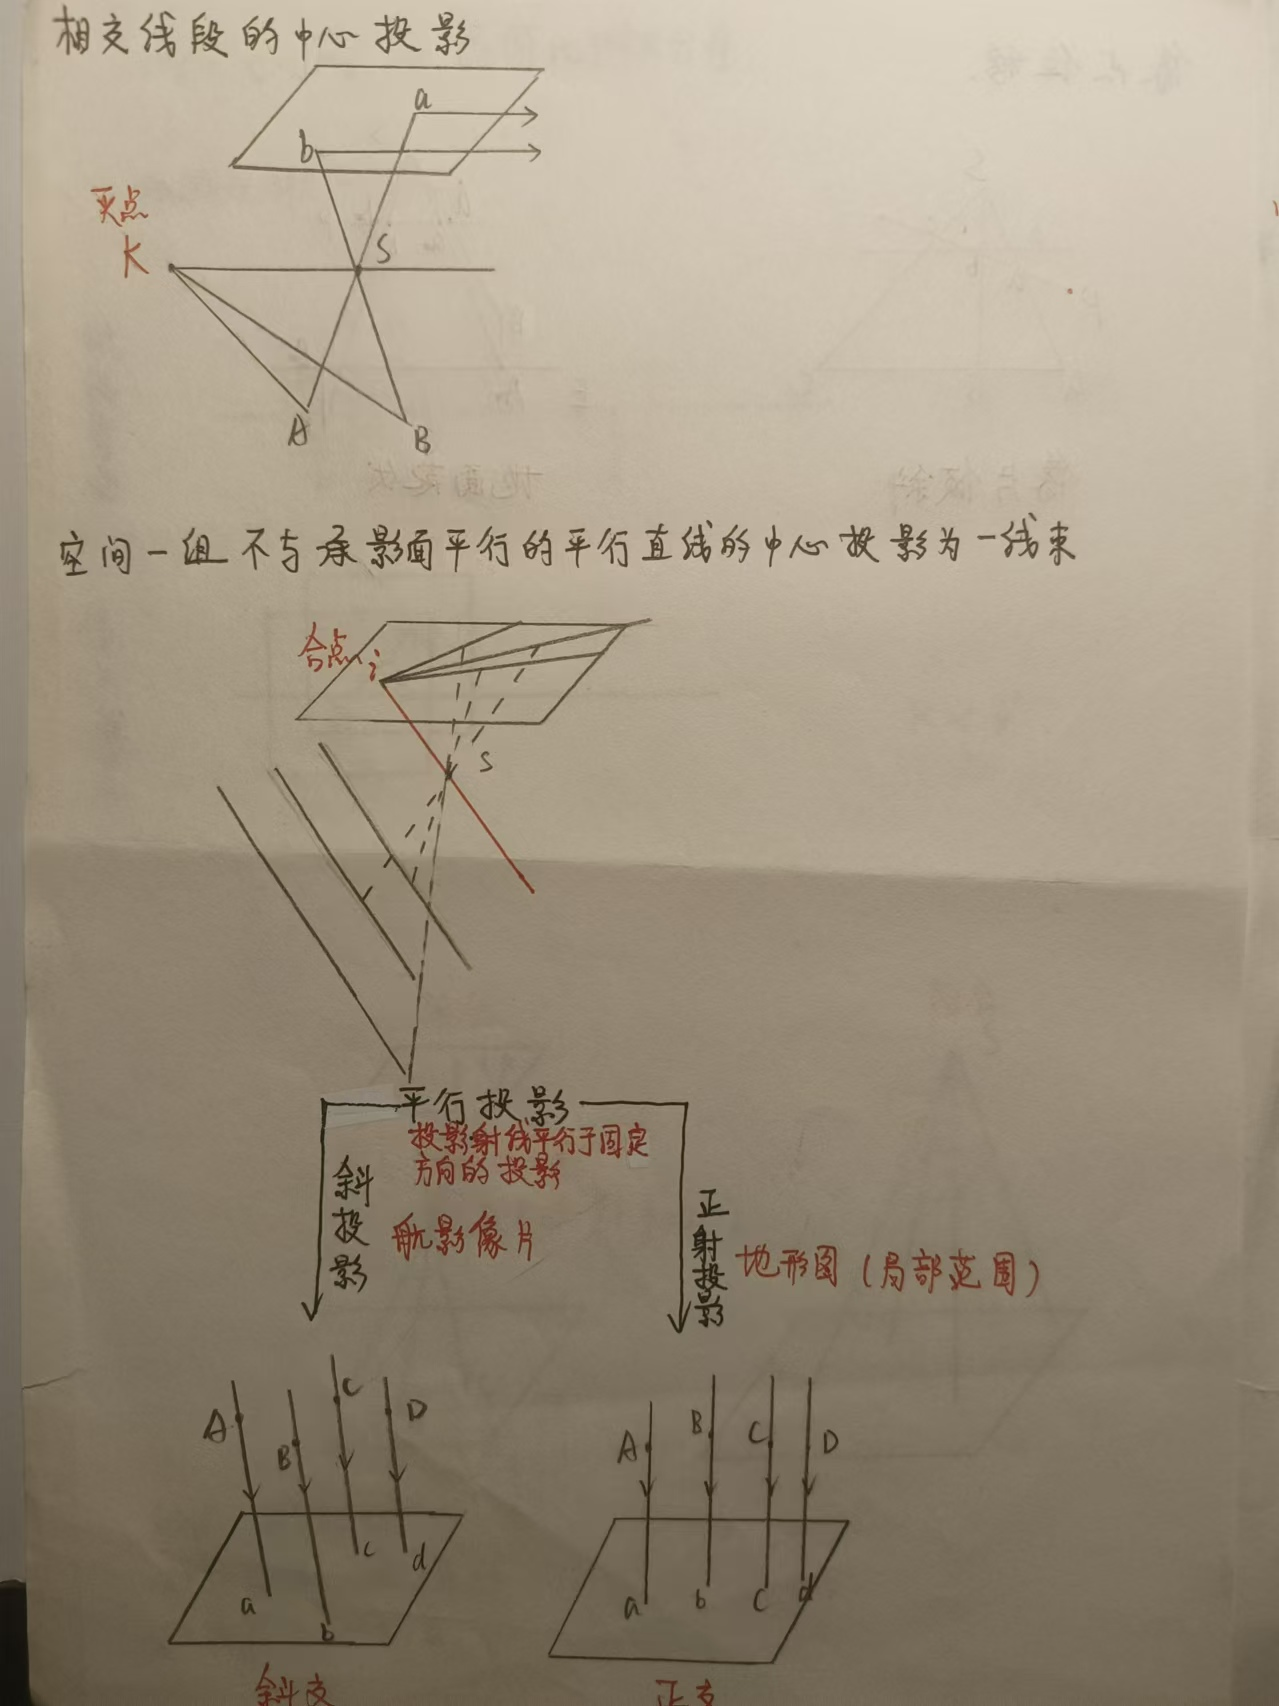 相交线段的中心投影
a
b
灭点
K
S
A
B
空间一组不与承影面平行的平行直线的中心投影为一线束
合点
i
S
平行投影
投影射线平行于固定
方向的投影
斜投影
航影像片
正射投影
地形图(局部范围)
A
B
C
D
a
b
c
d
A
B
C
D
a
b
c
d
斜交
正交